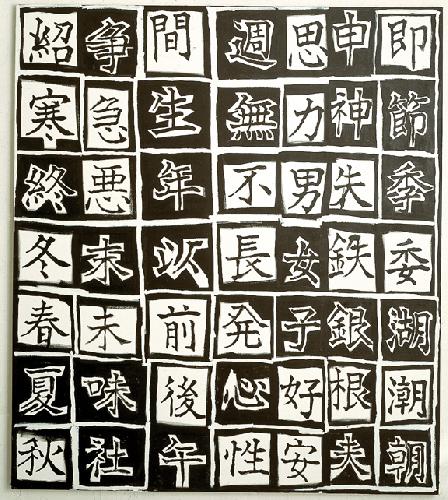 即節季委湖潮朝
申神失鉄銀根夫
思力男女子好安
週無不長発心性
間生年以前後午
争急悪末未味社
紹寒終冬春夏秋